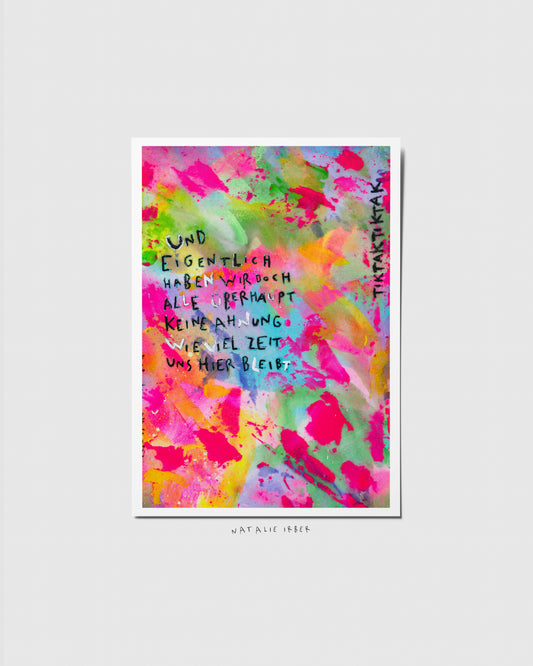 UND
EIGENTLICH
HABEN WIR DOCH
ALLE ÜBERHAUPT
KEINE AHNUNG
WIE VIEL ZEIT
UNS HIER BLEIBT
TIKTAKTIKTAK
NATALIE IRBER